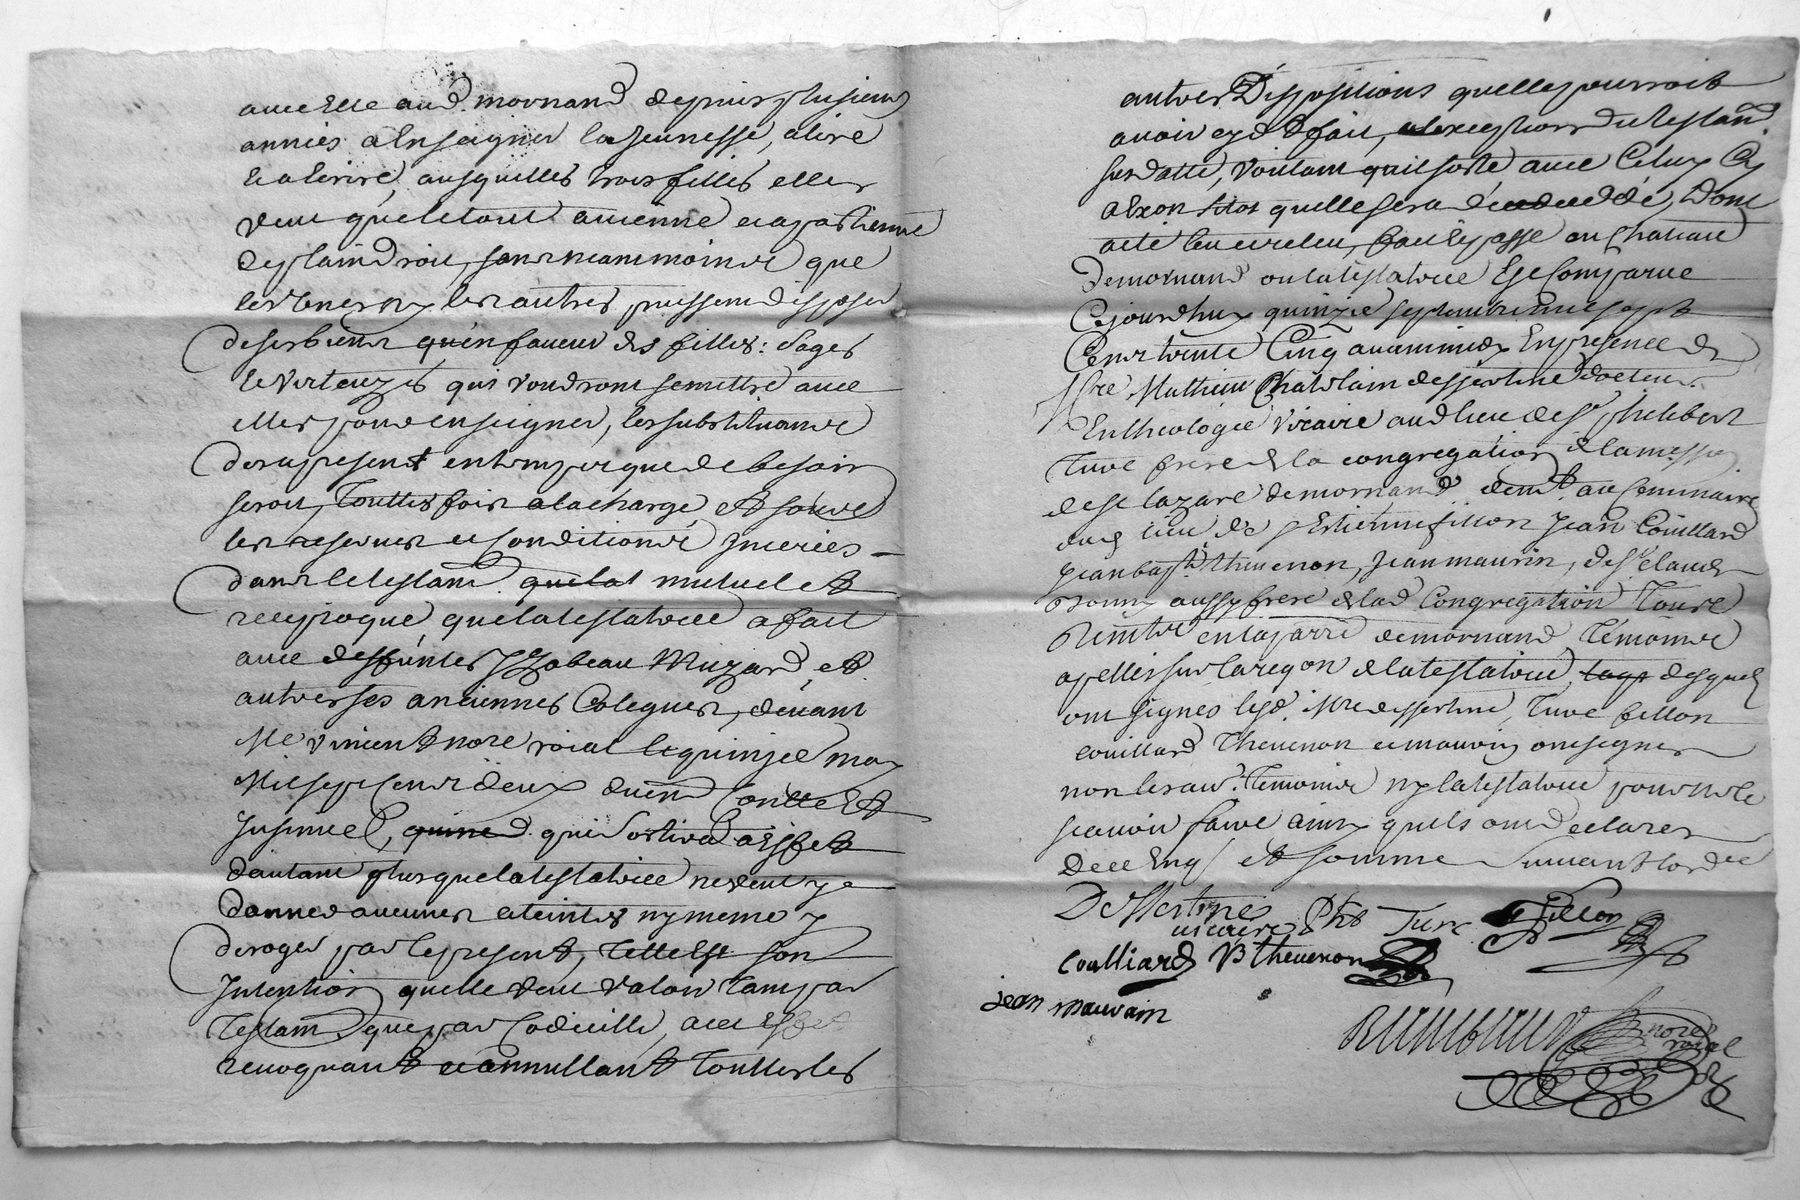 avec Elle aud. mornand depuis plusieurs
années a Enseigner la Jeunesse, a lire
Et a Ecrire, ausquelles trois filles elle
veut que le tout avienne et apartienne
de plain droit, sans neantmoins que
les unes ny les autres puissent disposer
de ses biens qu'en faveur des filles: sages
Et vertueuzes qui voudront se mettre avec
elles pour enseigner, les substituant
des a present en temps que de besoin
seroit, Touttes fois a la charge et sous
les reserves et Conditions Inserées
dans le testamt. mutuel et
reciproque que la testatrice a fait
avec deffuntes Izabeau Muzard et
autres ses anciennes Colegues, devant
Me Vincent nore roial le quinze may
Mil sept Cent deux duemt Contte Et
Insinué, qui sortira a Effet
d'autant plus que la testatrice ne veut y
donner aucunes ateintes ny meme y
deroger par le present, Telle Est son
Intention quelle veut valoir tant par
Testamt que par Codicille, a cet Effet
revoquant et annullant Touttes les
autres Dispositions quelle pourroit
avoir cy d. fait, a lexception du testamt.
susdatté, voulant qu'il sorte avec Celuy Cy
a Exon sitot quelle sera decedée, Dont
acte Leu et releu, fait Et passé au Chateau
de mornand ou la testatrice Est Comparue
Cejourdhuy quinzie septembre mil sept
Cent trente Cinq avant midy En presence de
Mre Mathieu Chatelain dessertine docteur
En theologie vicaire aud lieu de Sr philibert
Turc frere de la congregation de la
de st Lazare de mornand, demt. au Seminaire
dud lieu de sr Estienne fillon Jean Couillard
Jean bapte. thevenon, Jean mauvin, de Sr claude
aussy frere de lad Congregation Tous
en la parre de mornand, Témoins
apellés sur la req.on de la testatrice, desquels
ont signes lesd. Mre dessertine, Turc fillon
couillard Thevenon et mauvin ont signes
non les au. Temoins ny la testatrice pour ne le
scavoir faire ainsy quils ont declarer
de ce Enq. et sommé suivant lordce
Dessertines
vicaire Phb Turc fillon
coulliard JB thevenon
jean mauvain
nore
roial